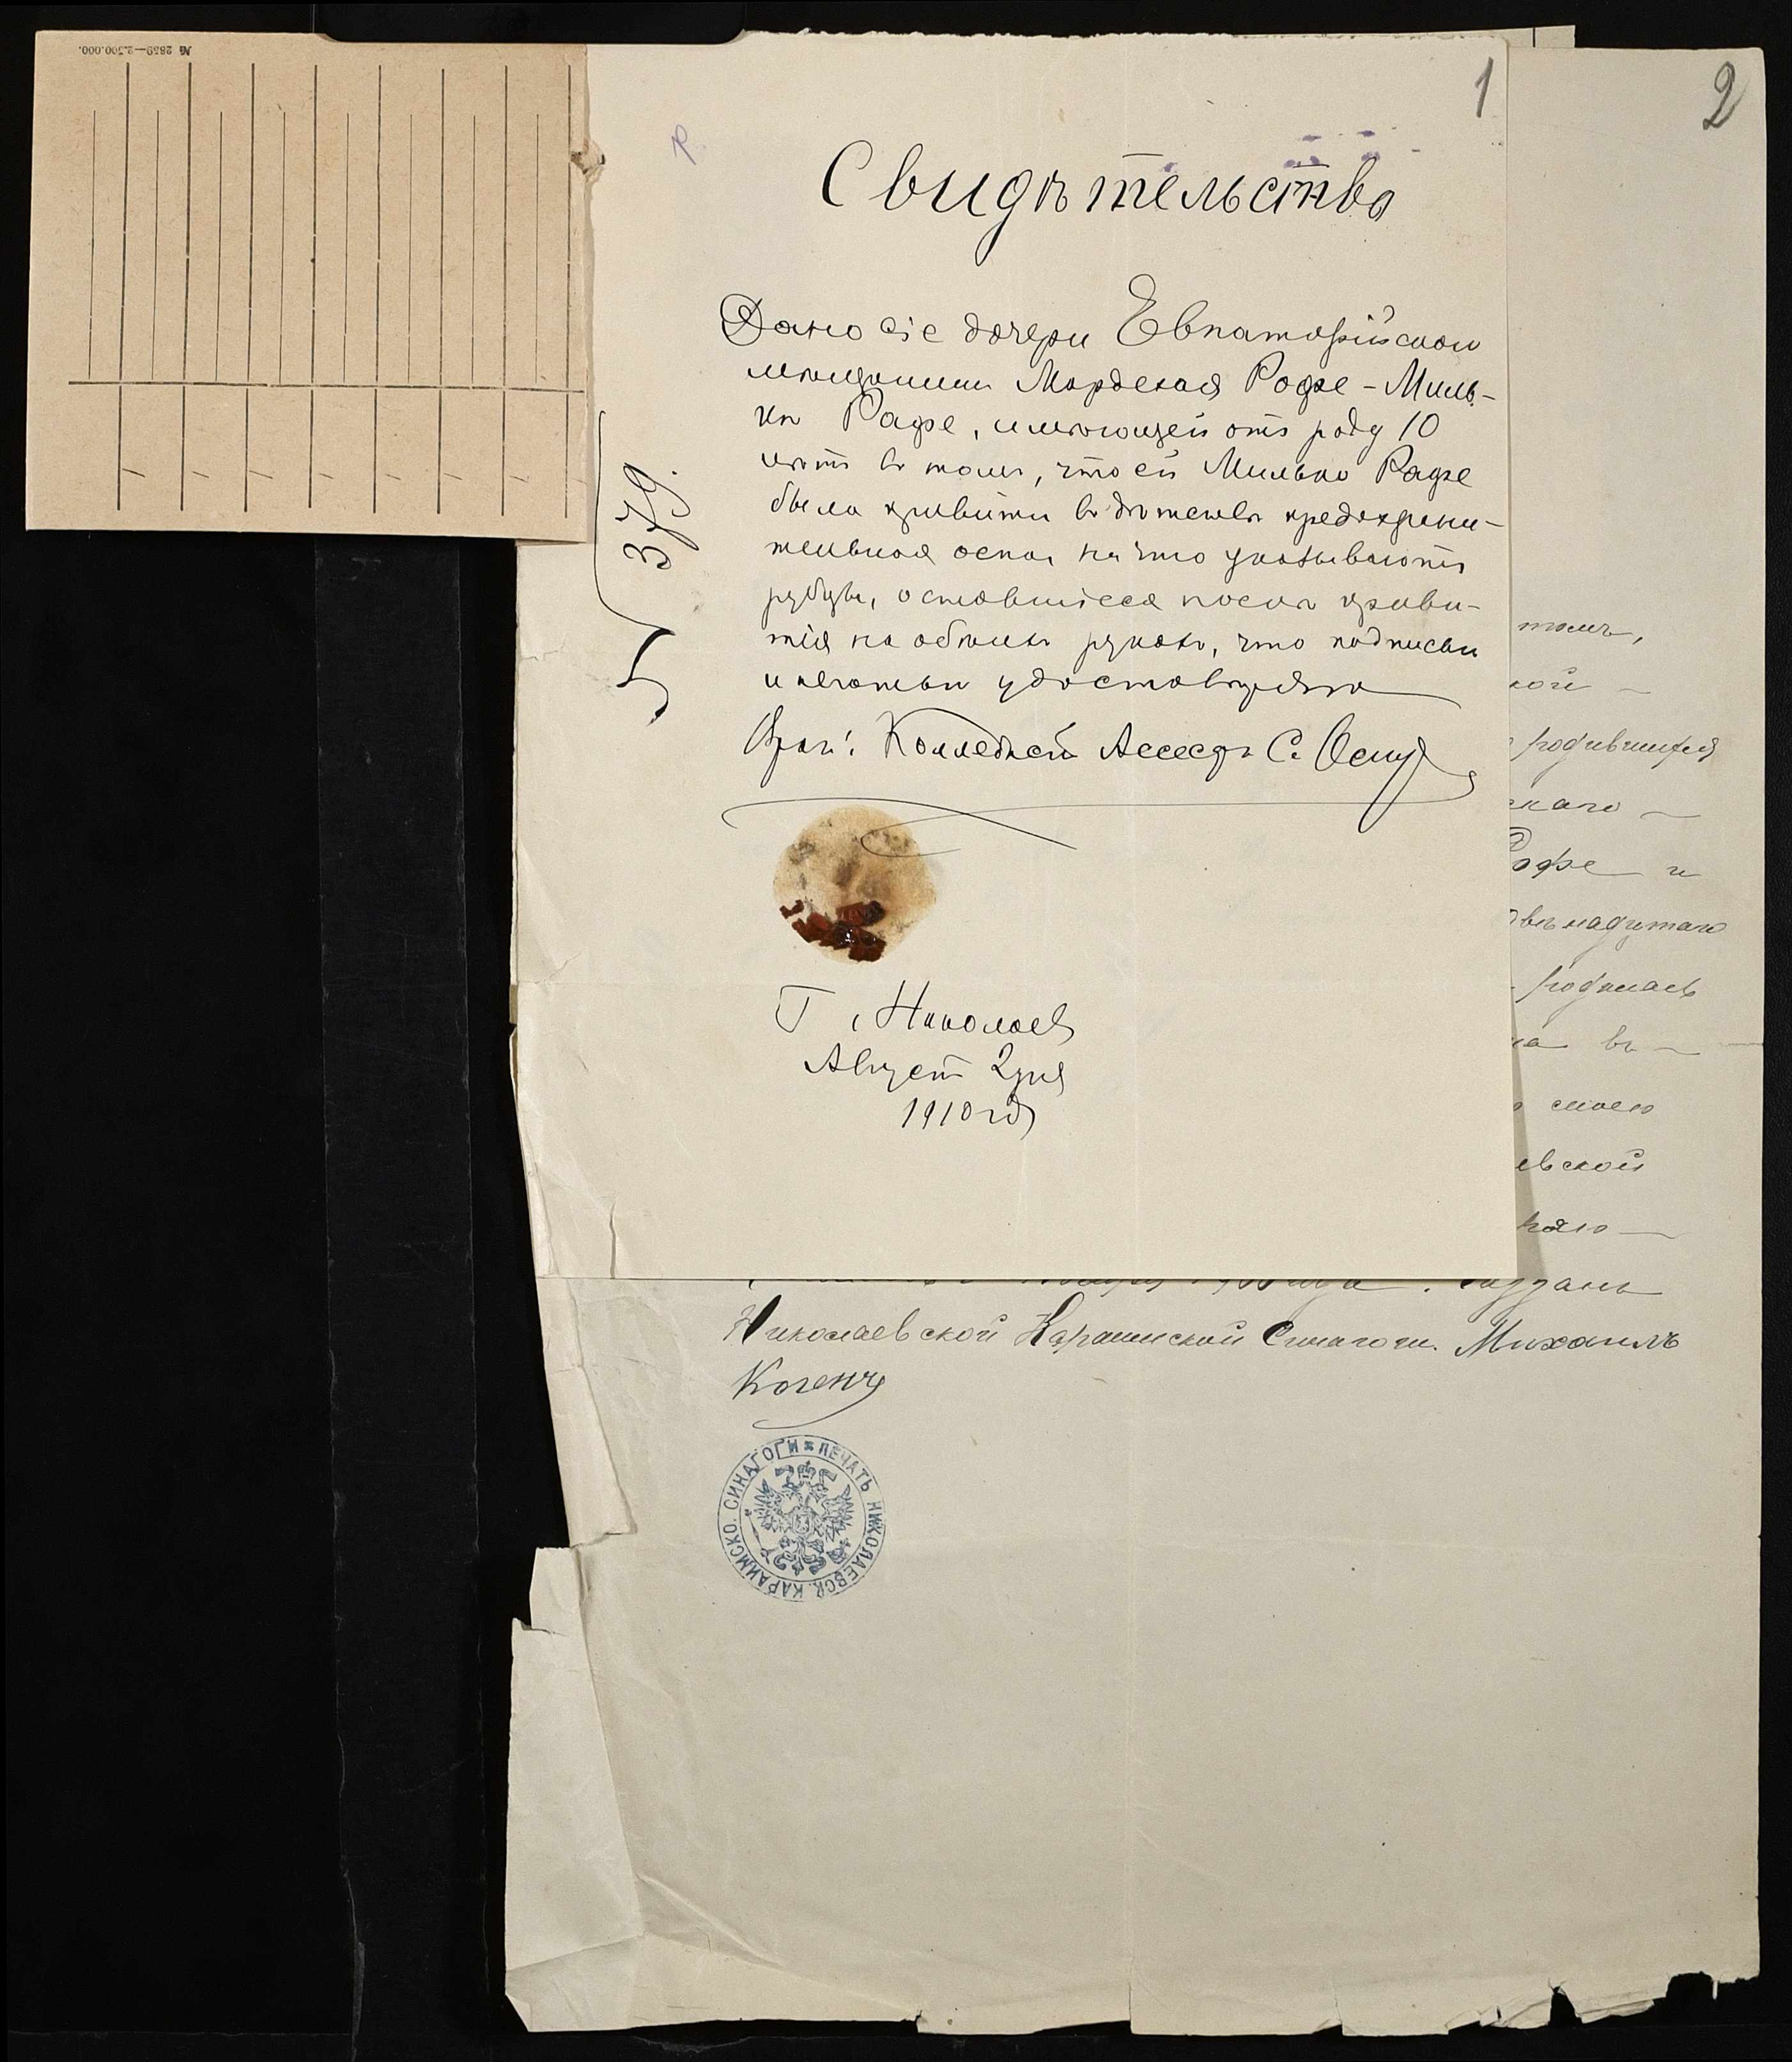 № 2859—2.500.000.
1
2
379.
Свидѣтельство
Дано сіе дочери Евпаторійскаго
мѣщанина Мордехая Рофе-Миль-
кѣ Рафе, имѣющей отъ роду 10
лѣтъ въ томъ, что ей Милькѣ Рафе
была привита въ дѣтствѣ предохрани-
тельная оспа, на что указываютъ
рубцы, оставшіеся послѣ приви-
тія на обѣихъ рукахъ, что подписью
и печатью удостовѣряю
Врачъ: Коллежскій Ассесоръ С.
Г. Николаев
Август 2 дня
1910 год
томъ,
кой
родившейся
скаго
Рофе и
двѣнадцатаго
родилась
на въ
моею
евской
Газзанъ
Николаевской Караимской Синагоги. Михаилъ
Когенъ
ПЕЧАТЬ НИКОЛАЕВСК. КАРАИМСКО. СИНАГОГИ